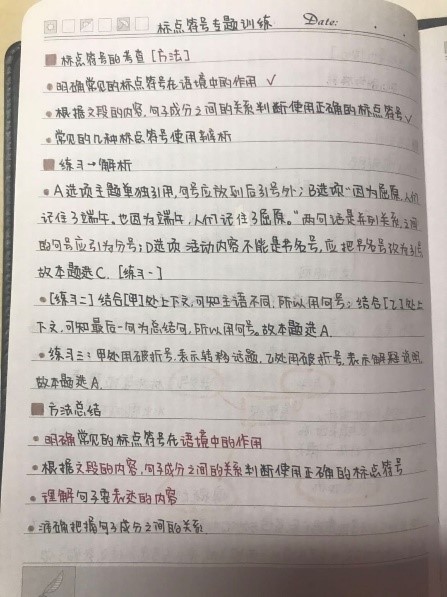 标点符号专题训练 Date:
标点符号的考查[方法]
• 明确常见的标点符号在语境中的作用 ✓
• 根据文段的内容,句子成分之间的关系判断使用正确的标点符号✓
• 常见的几种标点符号使用解析
练习→解析
• A选项主题单独引用,句号应放到后引号外;B选项"因为屈原,人们
记住了端午。也因为端午,人们记住了屈原。"两句话是并列关系,之间
的句号应引为分号;D选项 活动内容不能是书名号,应把书名号改为引号
故本题选C.[练习一]
• [练习二]结合[甲]处上下文,可知主语不同,所以用句号;结合[乙]处上
下文,可知最后一句为总结句,所以用句号。故本题选A.
• 练习三:甲处用破折号,表示转移话题,乙处用破折号,表示解释说明,
故本题选A.
方法总结
• 明确常见的标点符号在语境中的作用
• 根据文段的内容,句子成分之间的关系判断使用正确的标点符号
• 理解句子要表达的内容
• 准确把握句子成分之间的关系